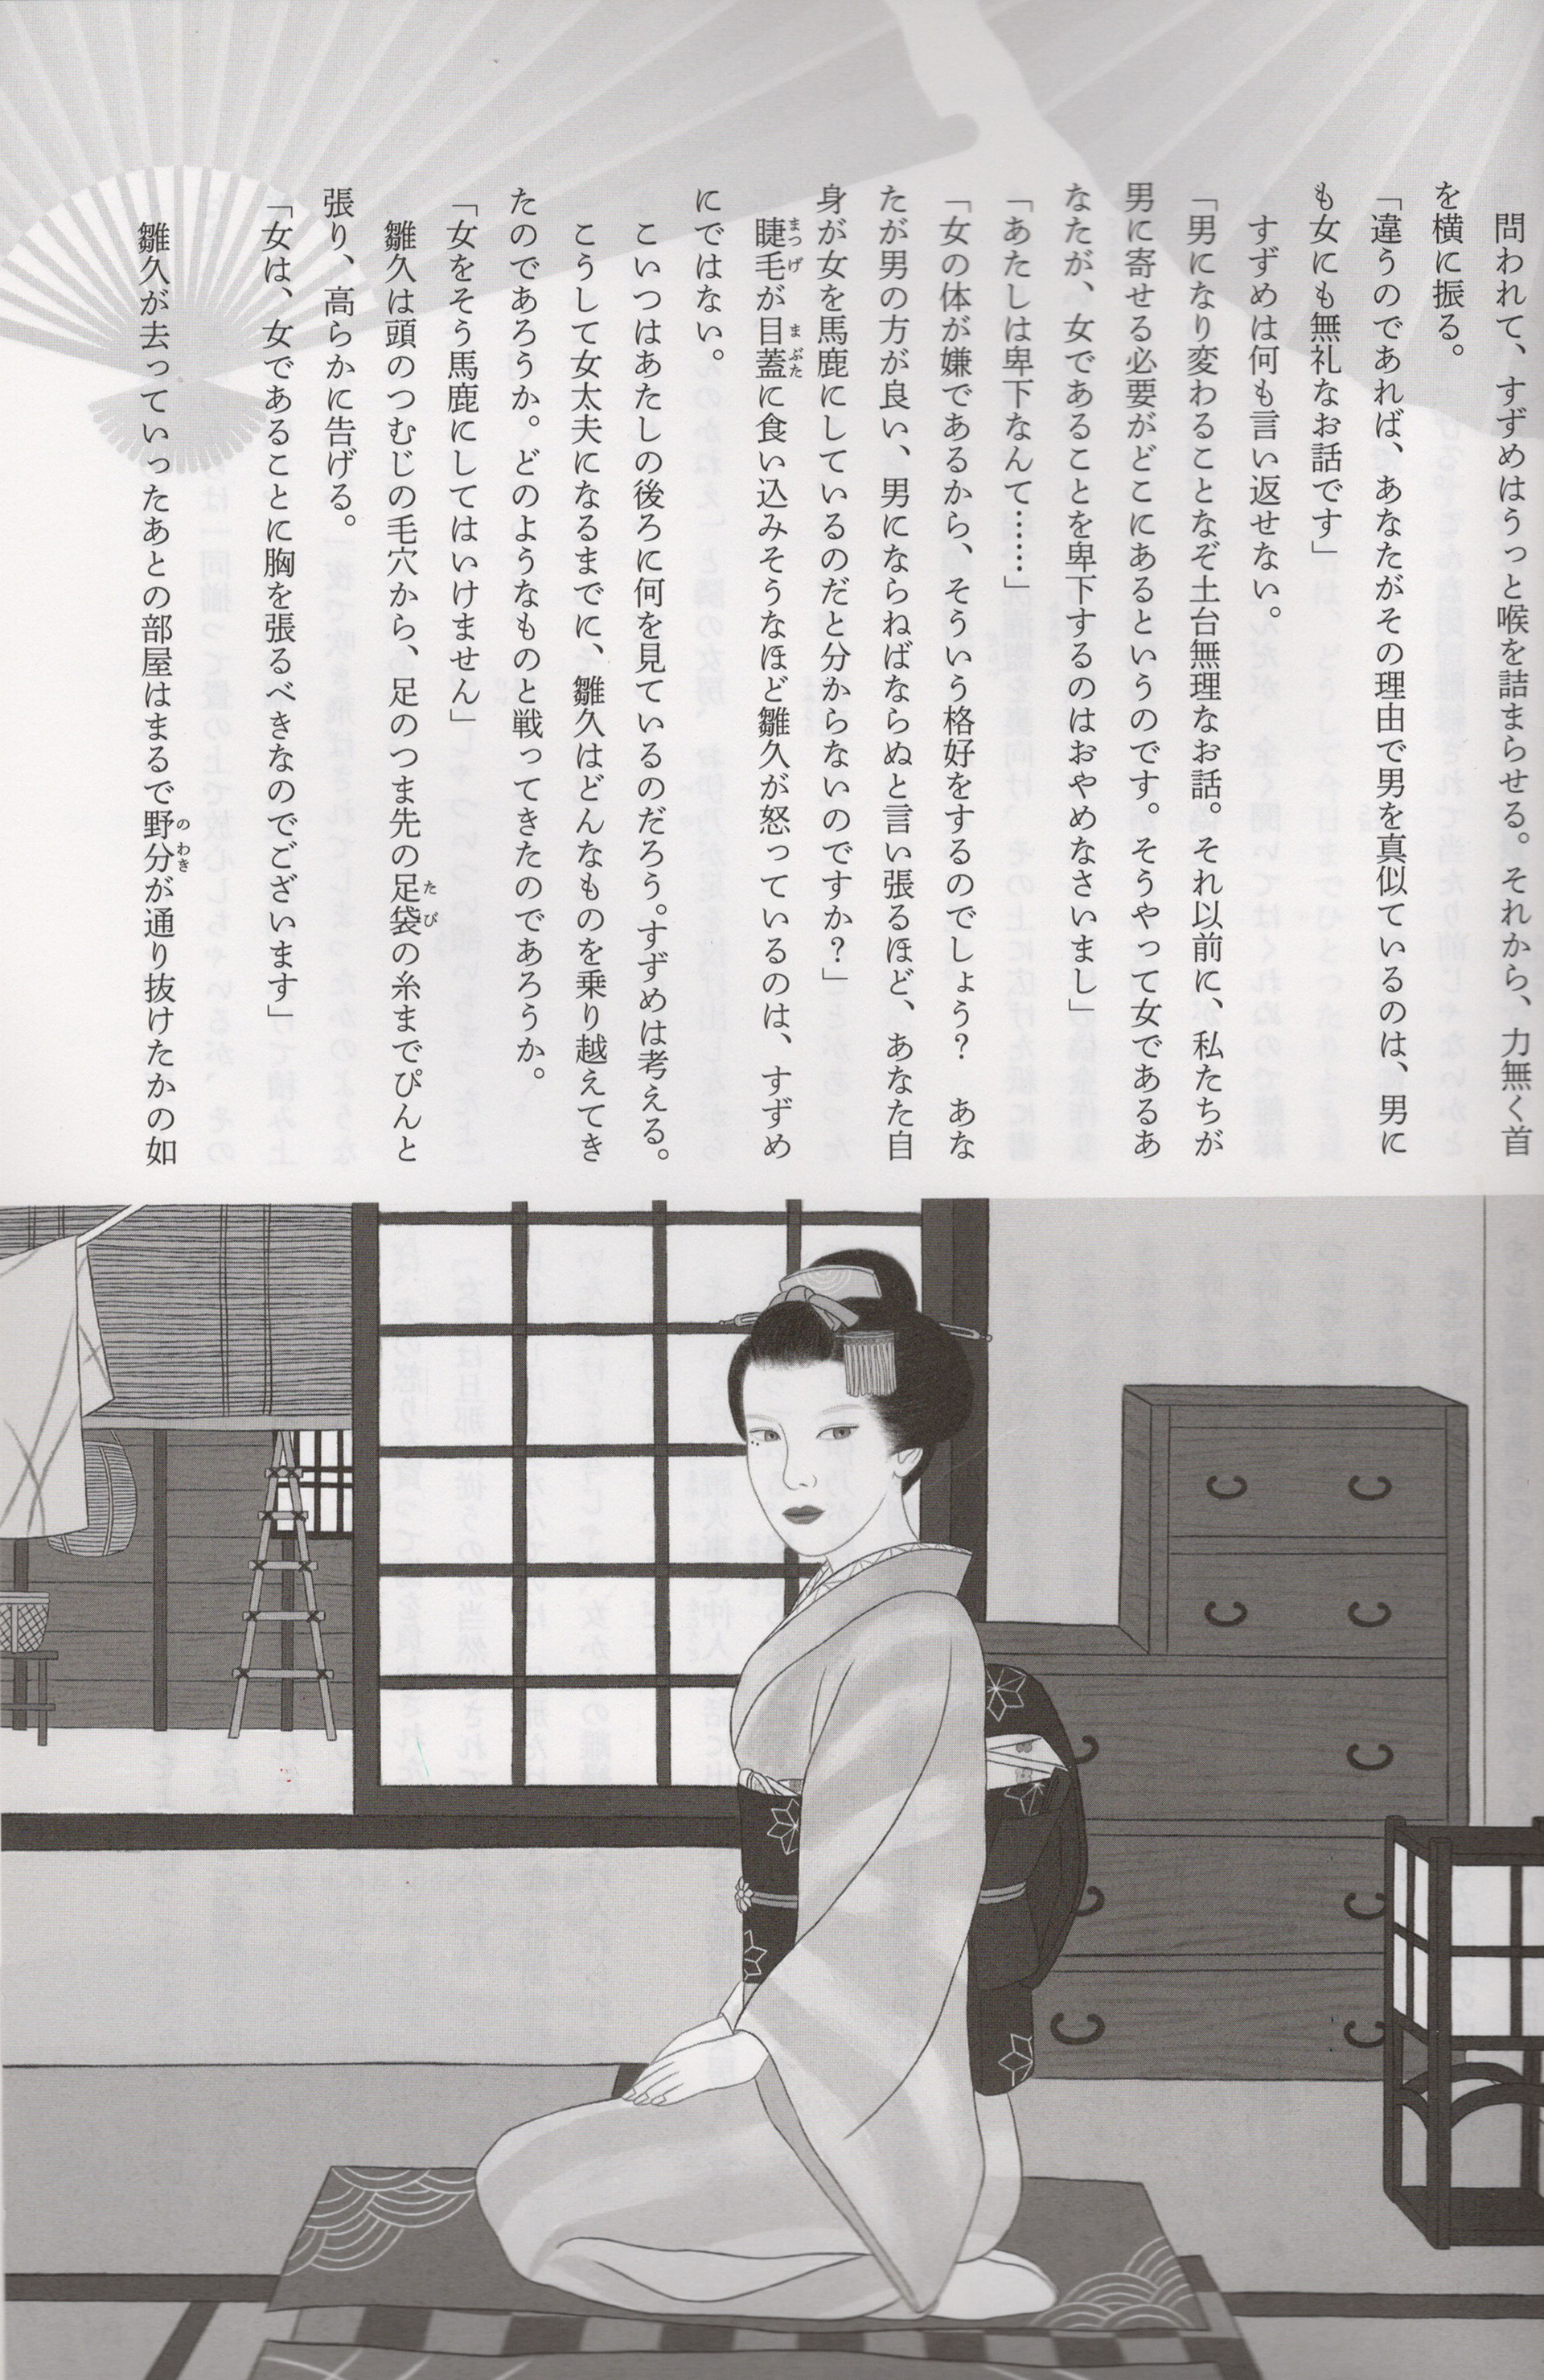 問われて、すずめはうっと喉を詰まらせる。それから、力無く首
を横に振る。
「違うのであれば、あなたがその理由で男を真似ているのは、男に
も女にも無礼なお話です」
すずめは何も言い返せない。
「男になり変わることなぞ土台無理なお話。それ以前に、私たちが
男に寄せる必要がどこにあるというのです。そうやって女であるあ
なたが、女であることを卑下するのはおやめなさいまし」
「あたしは卑下なんて……」
「女の体が嫌であるから、そういう格好をするのでしょう？　あな
たが男の方が良い、男にならねばならぬと言い張るほど、あなた自
身が女を馬鹿にしているのだと分からないのですか？」
睫毛が目蓋に食い込みそうなほど雛久が怒っているのは、すずめ
にではない。
こいつはあたしの後ろに何を見ているのだろう。すずめは考える。
こうして女太夫になるまでに、雛久はどんなものを乗り越えてき
たのであろうか。どのようなものと戦ってきたのであろうか。
「女をそう馬鹿にしてはいけません」
雛久は頭のつむじの毛穴から、足のつま先の足袋の糸までぴんと
張り、高らかに告げる。
「女は、女であることに胸を張るべきなのでございます」
雛久が去っていったあとの部屋はまるで野分が通り抜けたかの如